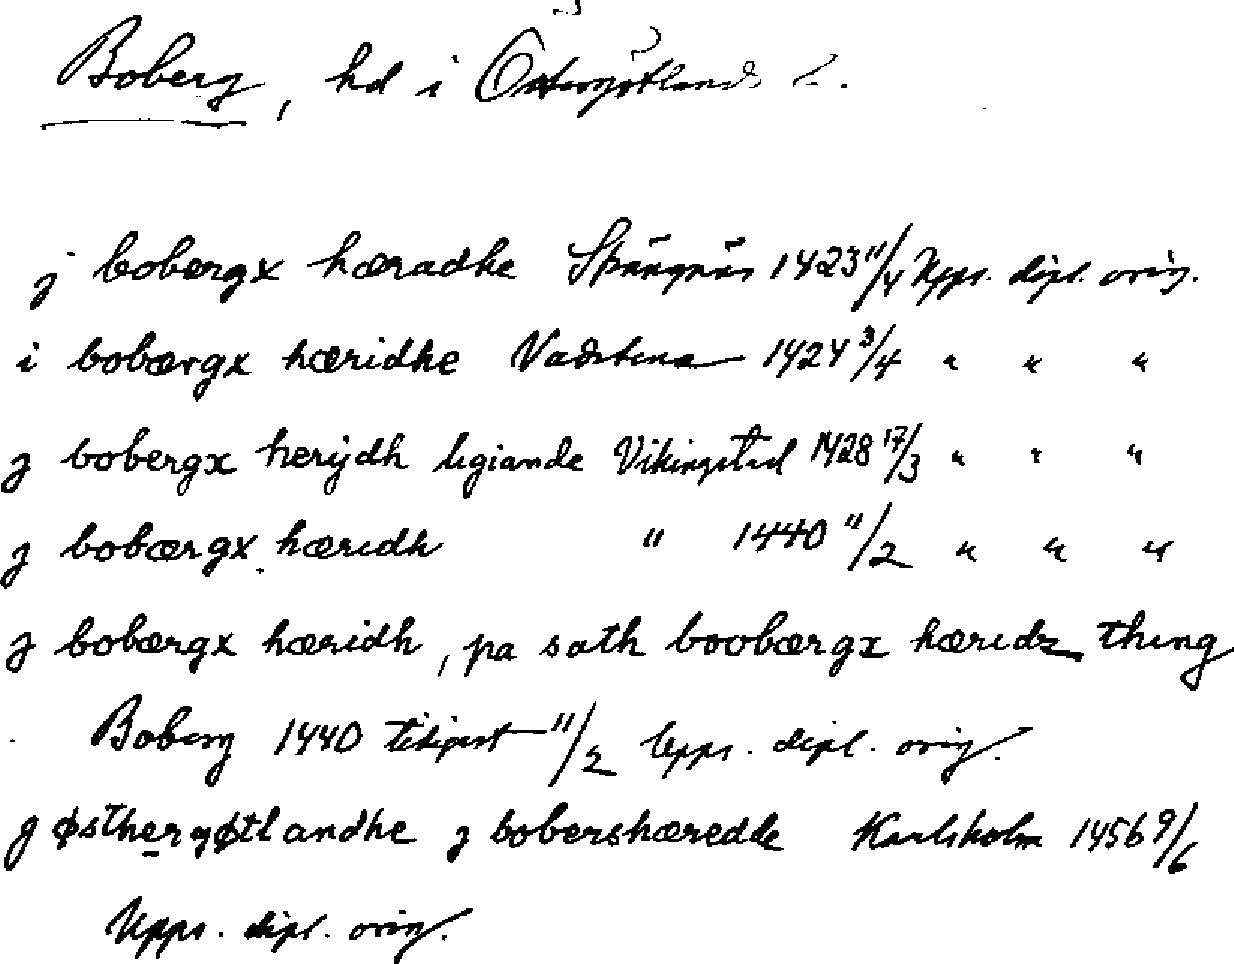 Boberg, hd i Östergötlands l.
j bobergx hæradhe Skänznäs 1423 11/4 Upps. dipl. orig.
i bobærgx hæridhe Vadstena 1424 3/4 " " "
j bobergx herijdh ligiande Vikingstad 1428 17/3 " " "
j bobærgx hæridh " 1440 11/2 " " "
j bobærgx hæridh, pa sath boobærgx hæridz thing
Boberg 1440 11/2 Upps. dipl. orig.
j østhergøtlandhe j bobershæredde Karlsholm 1456 9/6
Upps. dipl. orig.